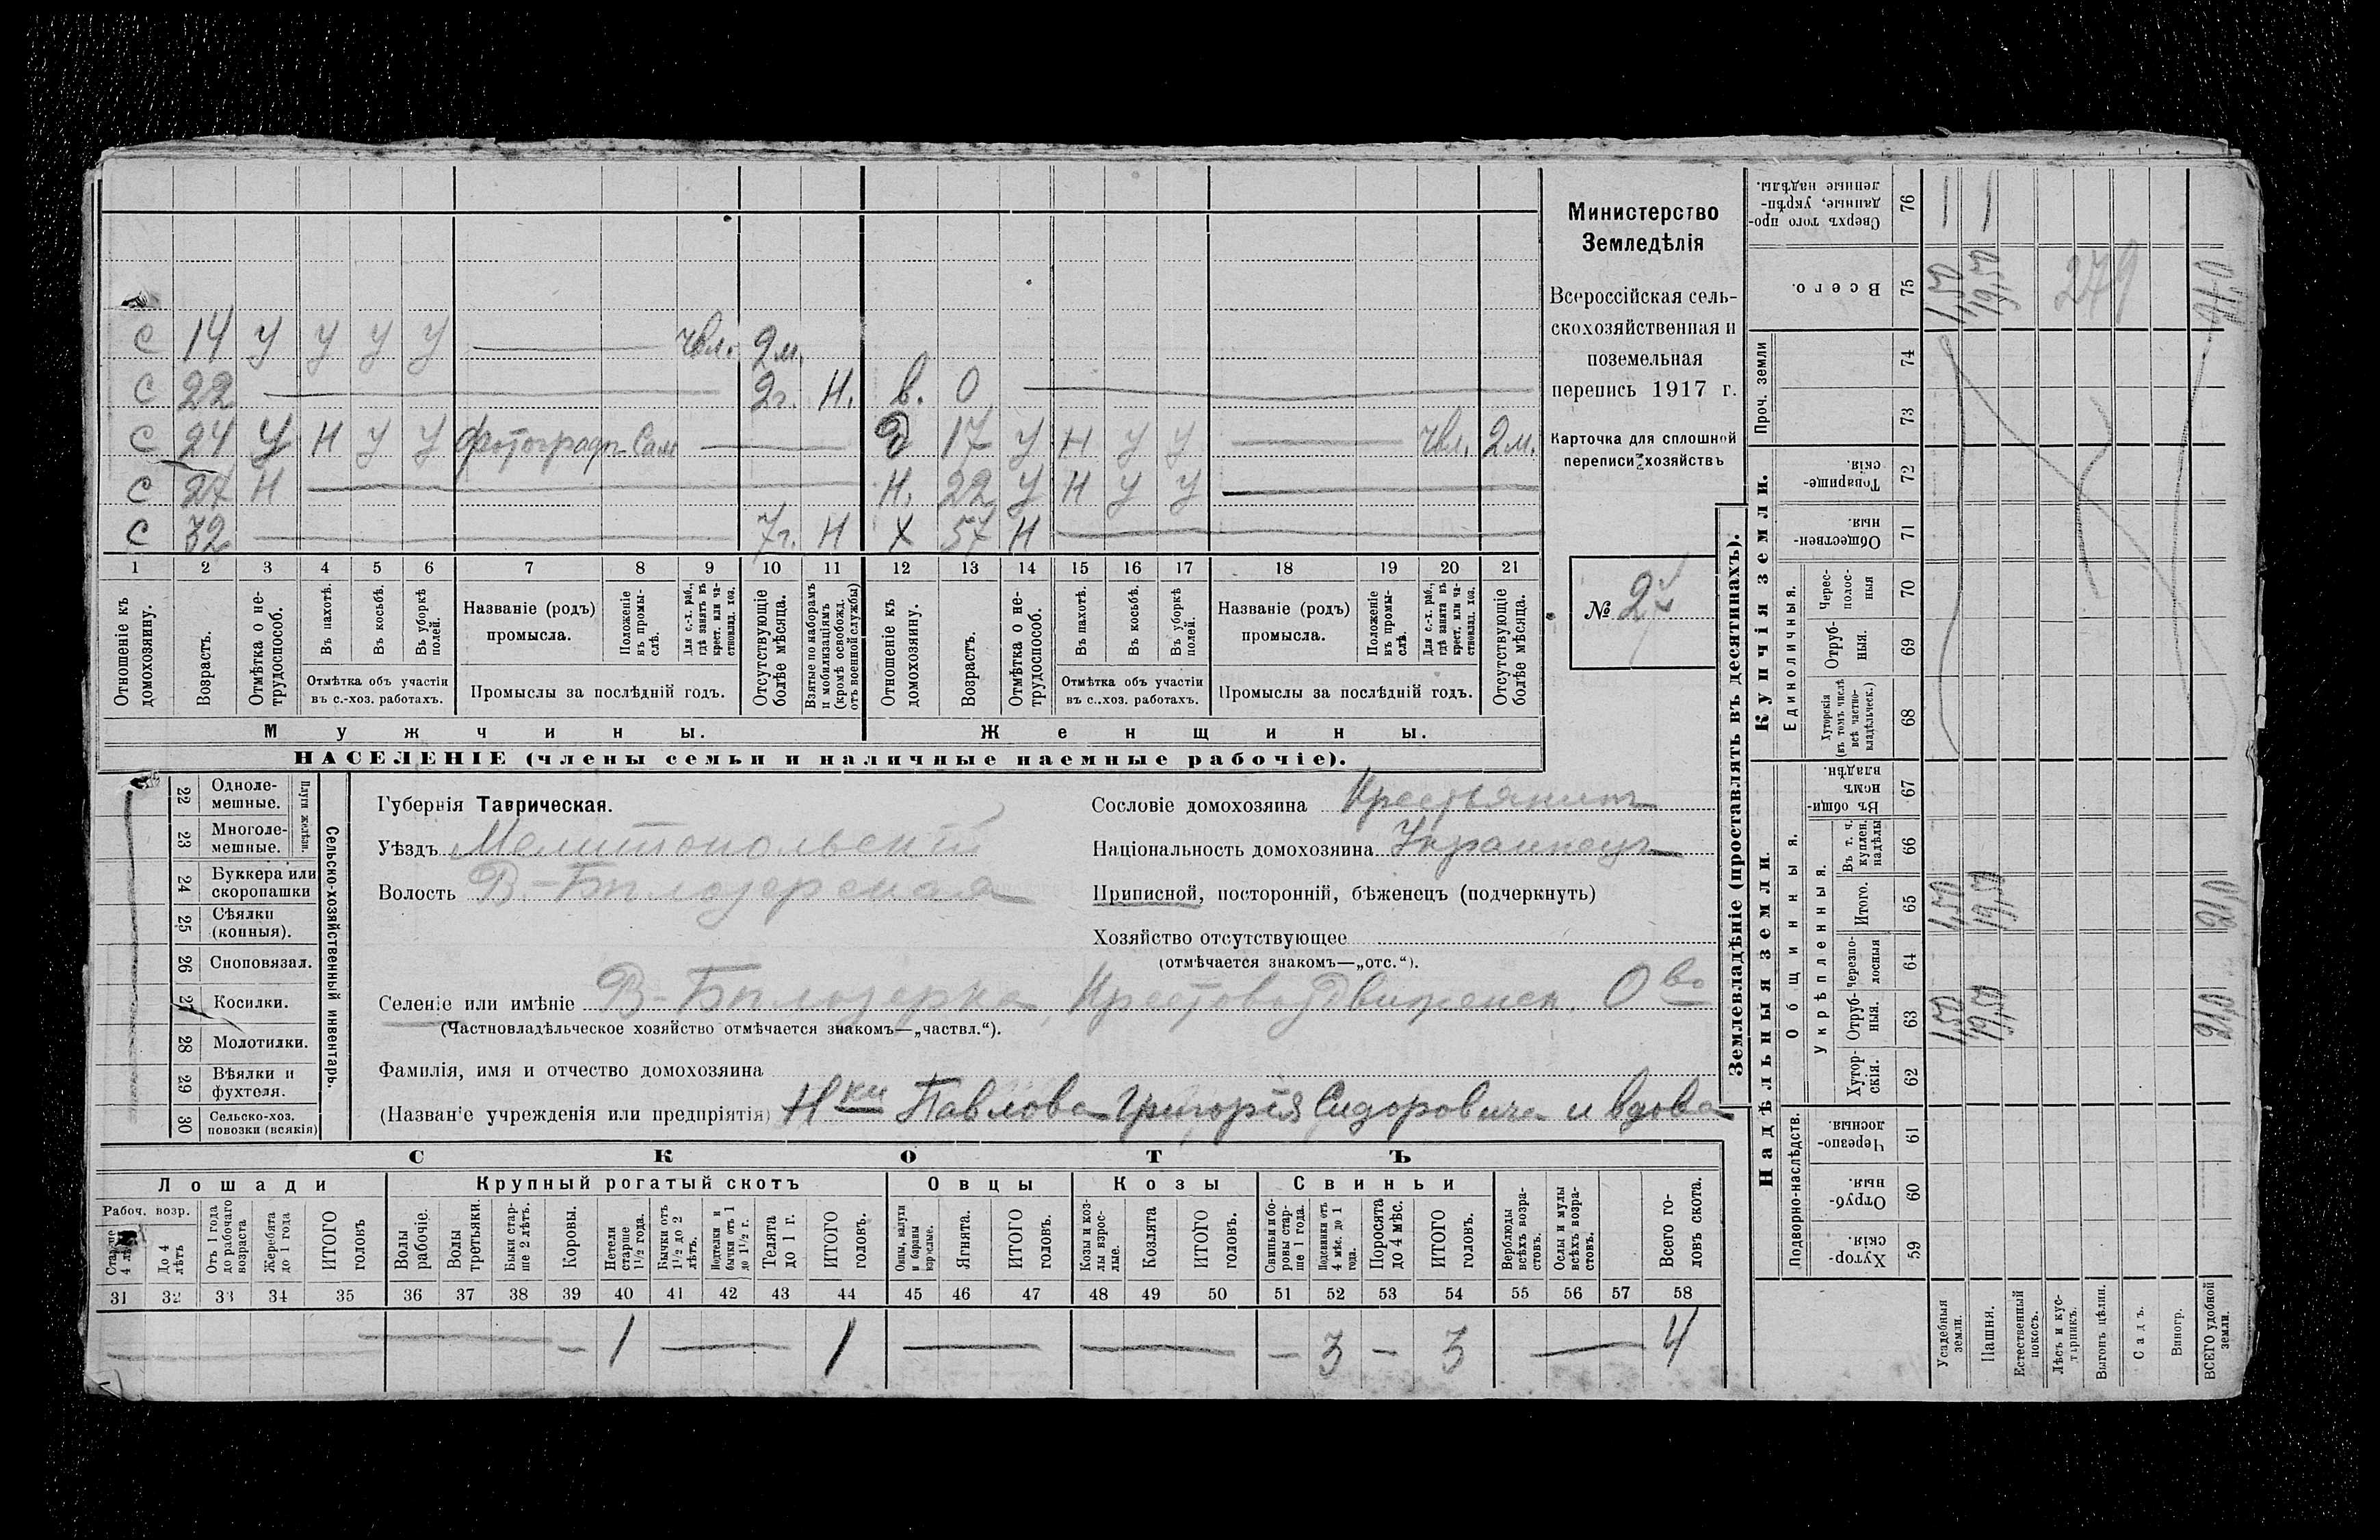 С 14 У У У У — чвл. 2 м.
С 22 — 2 г. Н. в. 0 —
С 24 У Н У У фотографъ Сам — Д 17 У Н У У — чвл. 2 м.
С 27 Н — Н. 22 У Н У У —
С 32 — 7 г. Н Х 57 Н —
1 2 3 4 5 6 7 8 9 10 11 12 13 14 15 16 17 18 19 20 21
Отношеніе къ домохозяину.
Возрастъ.
Отмѣтка о нетрудоспособ.
Въ пахотѣ.
Въ косьбѣ.
Въ уборкѣ полей.
Отмѣтка объ участіи
въ с.-хоз. работахъ.
Названіе (родъ)
промысла.
Положеніе въ промыслѣ.
Для с.-х. раб., гдѣ занятъ въ крест. или частновлад. хоз.
Промыслы за послѣдній годъ.
Отсутствующіе болѣе мѣсяца.
Взятые по наборамъ и мобилизаціямъ (кромѣ освобожд. отъ военной службы)
Отношеніе къ домохозяину.
Возрастъ.
Отмѣтка о нетрудоспособ.
Въ пахотѣ.
Въ косьбѣ.
Въ уборкѣ полей.
Отмѣтка объ участіи
въ с.-хоз. работахъ.
Названіе (родъ)
промысла.
Положеніе въ промыслѣ.
Для с.-х. раб., гдѣ занята въ крест. или частновлад. хоз.
Промыслы за послѣдній годъ.
Отсутствующіе болѣе мѣсяца.
Мужчины. Женщины.
НАСЕЛЕНІЕ (члены семьи и наличные наемные рабочіе).
Министерство
Земледѣлія
Всероссійская сель-
скохозяйственная и
поземельная
перепись 1917 г.
Карточка для сплошной
переписи хозяйствъ
№ 24
22 Однолемешные.
23 Многолемешные.
Плуги желѣзн.
24 Буккера или скоропашки
25 Сѣялки (конныя).
26 Сноповязал.
27 Косилки.
28 Молотилки.
29 Вѣялки и фухтеля.
30 Сельско-хоз. повозки (всякія)
Сельско-хозяйственный инвентарь.
Губернія Таврическая.
Уѣздъ Мелитопольскій
Волость В.-Бѣлозерская
Сословіе домохозяина Крестьянинъ
Національность домохозяина Украинецъ
Приписной, посторонній, бѣженецъ (подчеркнуть)
Хозяйство отсутствующее
(отмѣчается знакомъ—„отс.“).
Селеніе или имѣніе В-Бѣлозерка, Крестовоздвиженск. О во
(Частновладѣльческое хозяйство отмѣчается знакомъ—„частвл.“).
Фамилія, имя и отчество домохозяина
(Названіе учрежденія или предпріятія) Н ки Павлова Григорія Сидоровича и вдова
СКОТЪ
Лошади Крупный рогатый скотъ Овцы Козы Свиньи
Рабоч. возр.
Старше 4 лѣтъ
До 4 лѣтъ
Отъ 1 года до рабочаго возраста
Жеребята до 1 года
ИТОГО головъ
Волы рабочіе.
Волы третьяки.
Быки старше 2 лѣтъ.
Коровы.
Нетели старше 1½ года.
Бычки отъ 1½ до 2 лѣтъ.
Подтелки и бычки отъ 1 до 1½ г.
Телята до 1 г.
ИТОГО головъ.
Овцы, валухи и бараны взрослые.
Ягнята.
ИТОГО головъ.
Козы и козлы взрослые.
Козлята
ИТОГО головъ.
Свиньи и боровы старше 1 года.
Подсвинки отъ 4 мѣс. до 1 года.
Поросята до 4 мѣс.
ИТОГО головъ.
Верблюды всѣхъ возрастовъ.
Ослы и мулы всѣхъ возрастовъ.
Всего головъ скота.
31 32 33 34 35 36 37 38 39 40 41 42 43 44 45 46 47 48 49 50 51 52 53 54 55 56 57 58
— — — 1 — 1 — — — 3 — 3 — 4
Землевладѣніе (проставлять въ десятинахъ).
Надѣльныя земли.
Купчія земли.
Проч. земли
Подворно-наслѣдств.
Общинныя.
Укрѣпленныя.
Единоличныя.
59 Хуторскія.
60 Отрубныя.
61 Черезполосныя.
62 Хуторскія.
63 Отрубныя. 1,50 19,50 21,0
64 Черезполосныя
65 Итого. 1,50 19,50 21,0
66 Въ т. ч. куплен. надѣлы
67 Въ общинномъ владѣн.
68 Хуторскія (въ томъ числѣ всѣ частновладѣльческ.)
69 Отрубныя.
70 Черезполосныя
71 Общественныя.
72 Товарищескія.
73
74
75 Всего. 1,50 19,50 279 21,0
76 Сверхъ того проданные, укрѣпленные надѣлы.
Усадебныя земли.
Пашня.
Естественный покосъ.
Лѣсъ и кустарникъ.
Выгонъ цѣлин.
Садъ.
Виногр.
ВСЕГО удобной земли.